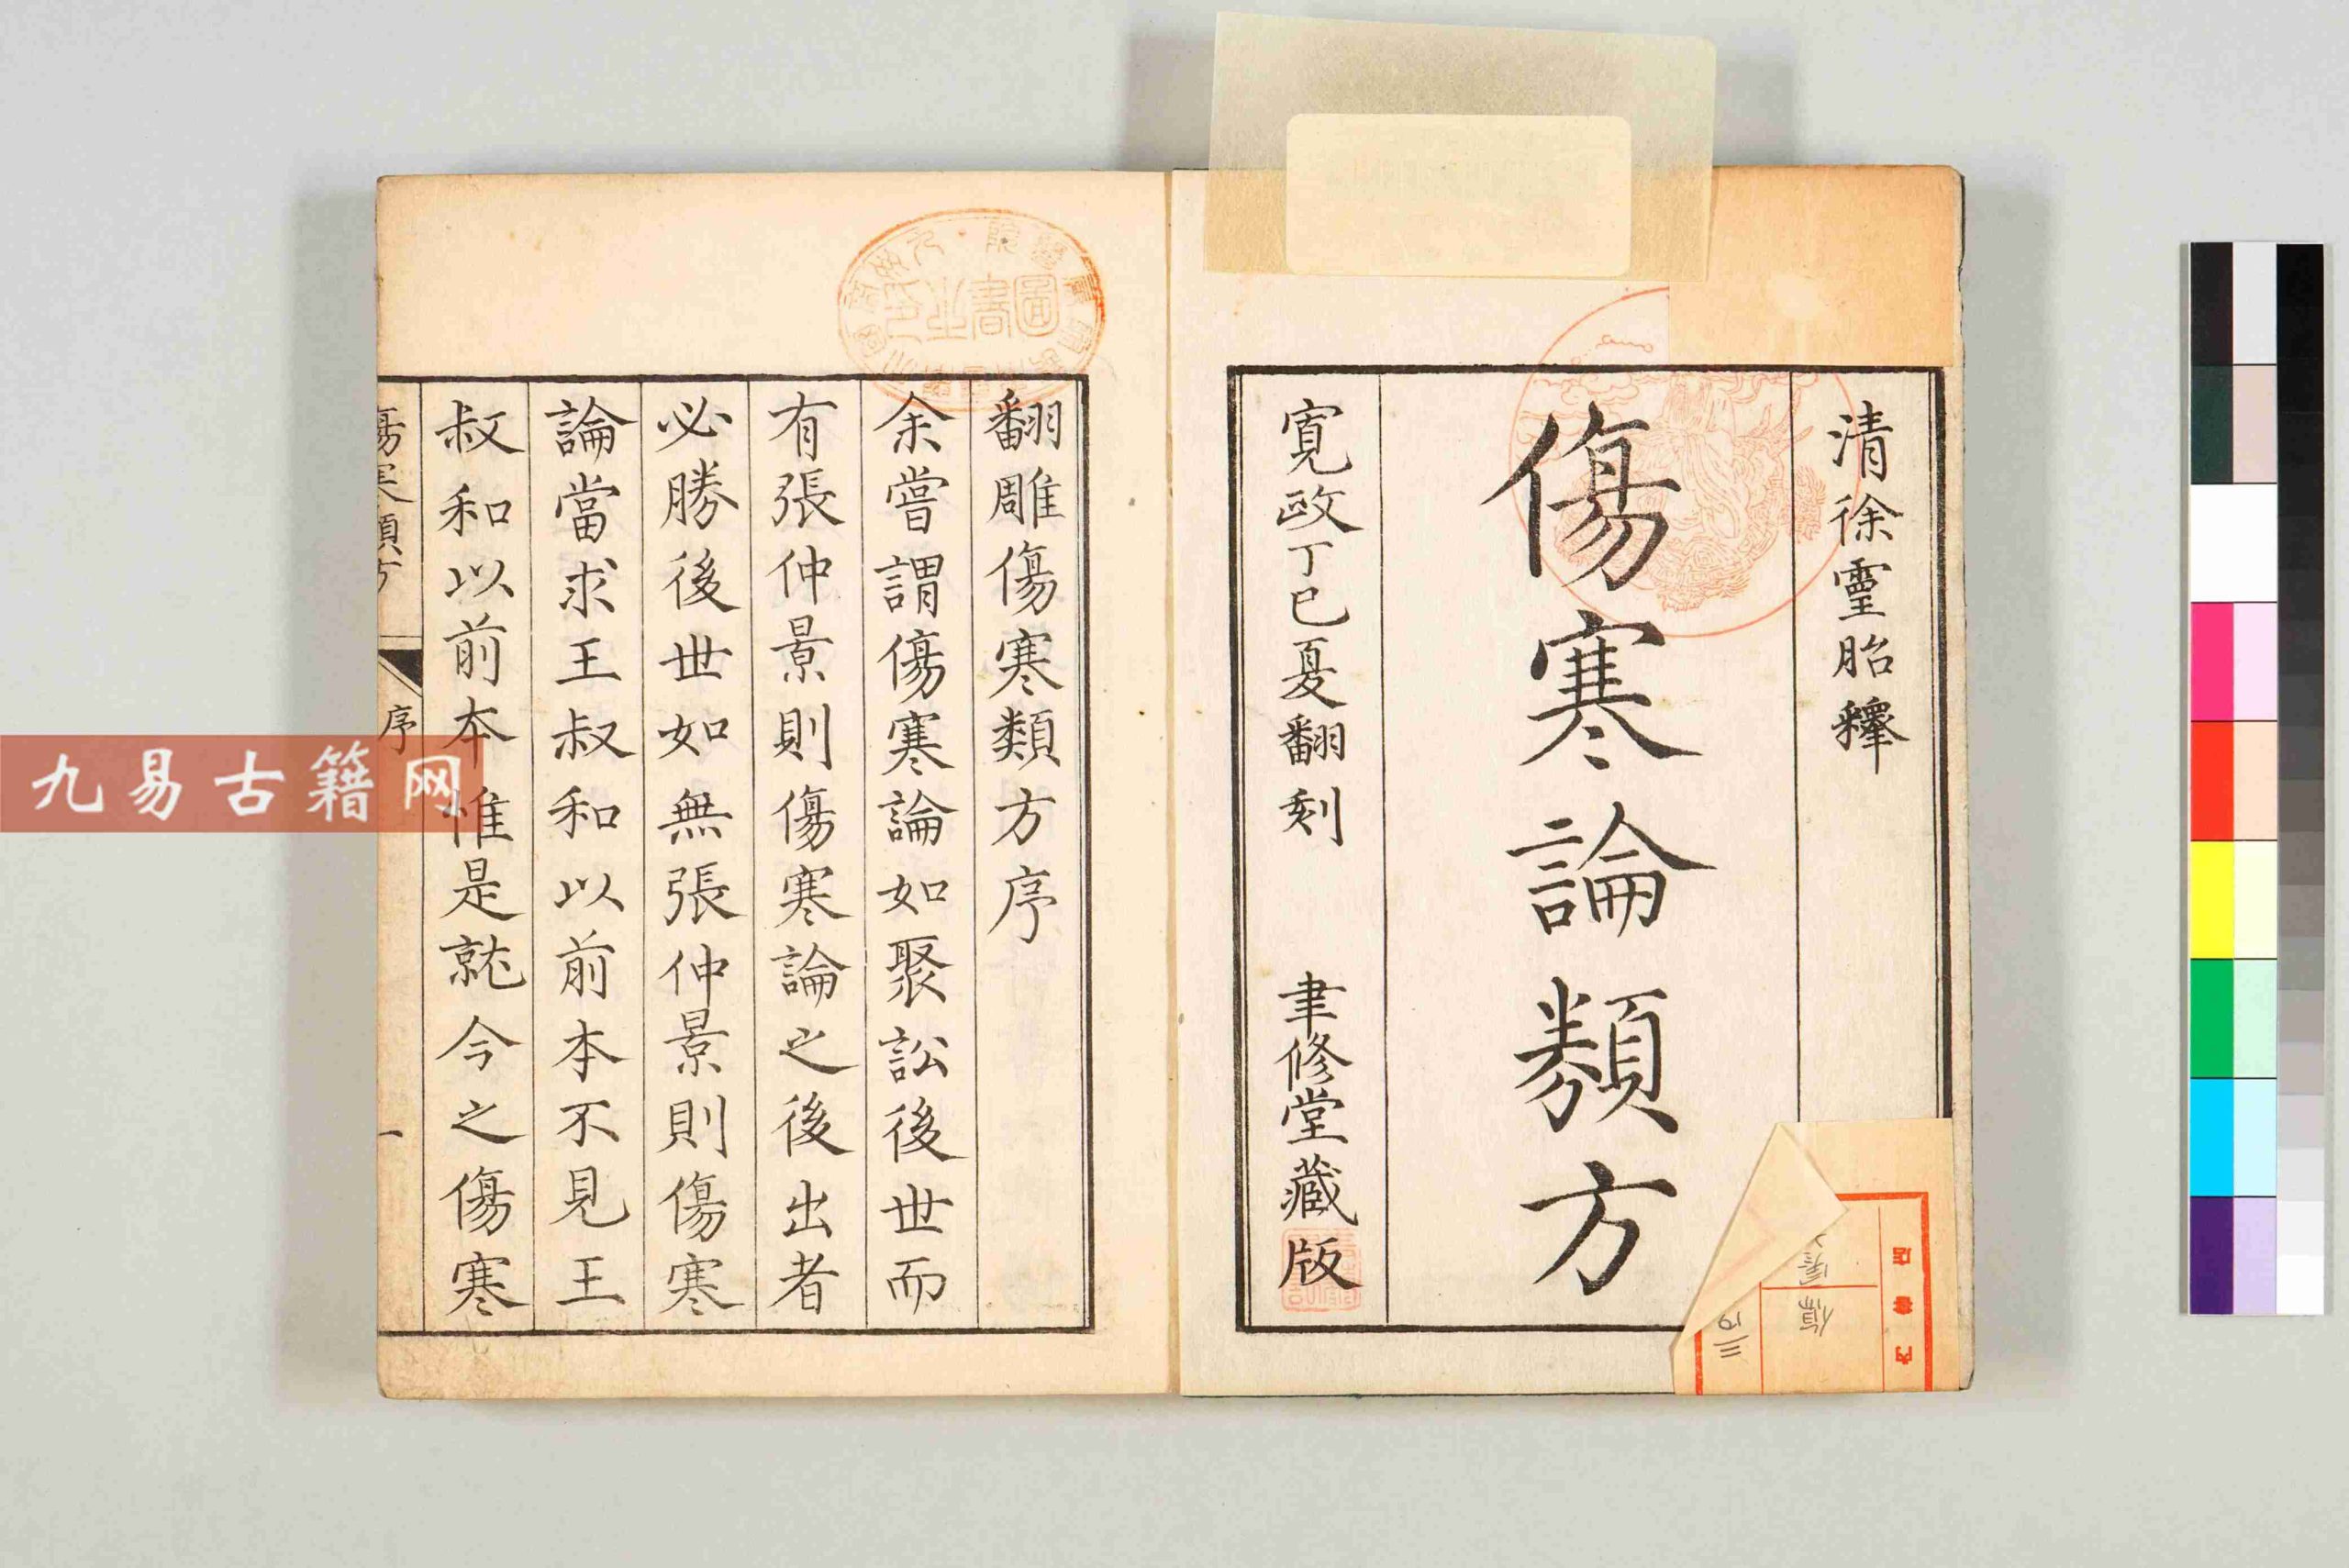 清徐靈胎釋
傷寒論類方
寬政丁巳夏翻刻 聿修堂藏版
翻雕傷寒類方序
余嘗謂傷寒論如聚訟後世而
有張仲景則傷寒論之後出者
必勝後世如無張仲景則傷寒
論當求王叔和以前本不見王
叔和以前本惟是就今之傷寒
傷寒類方 序 一
圖書之
九易古籍网